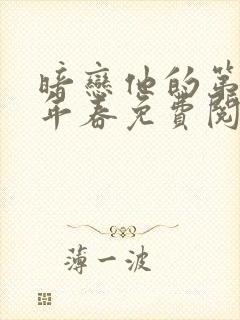 暗戀他的第
年春免費閱
薄一波